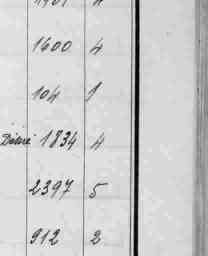 1600 4
104 1
1834 4
2397 5
912 2